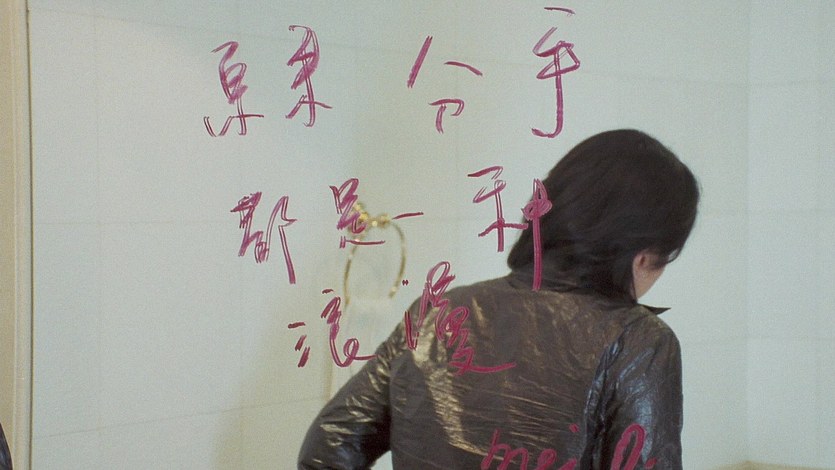 原来 分手
都是一种
浪漫
mei